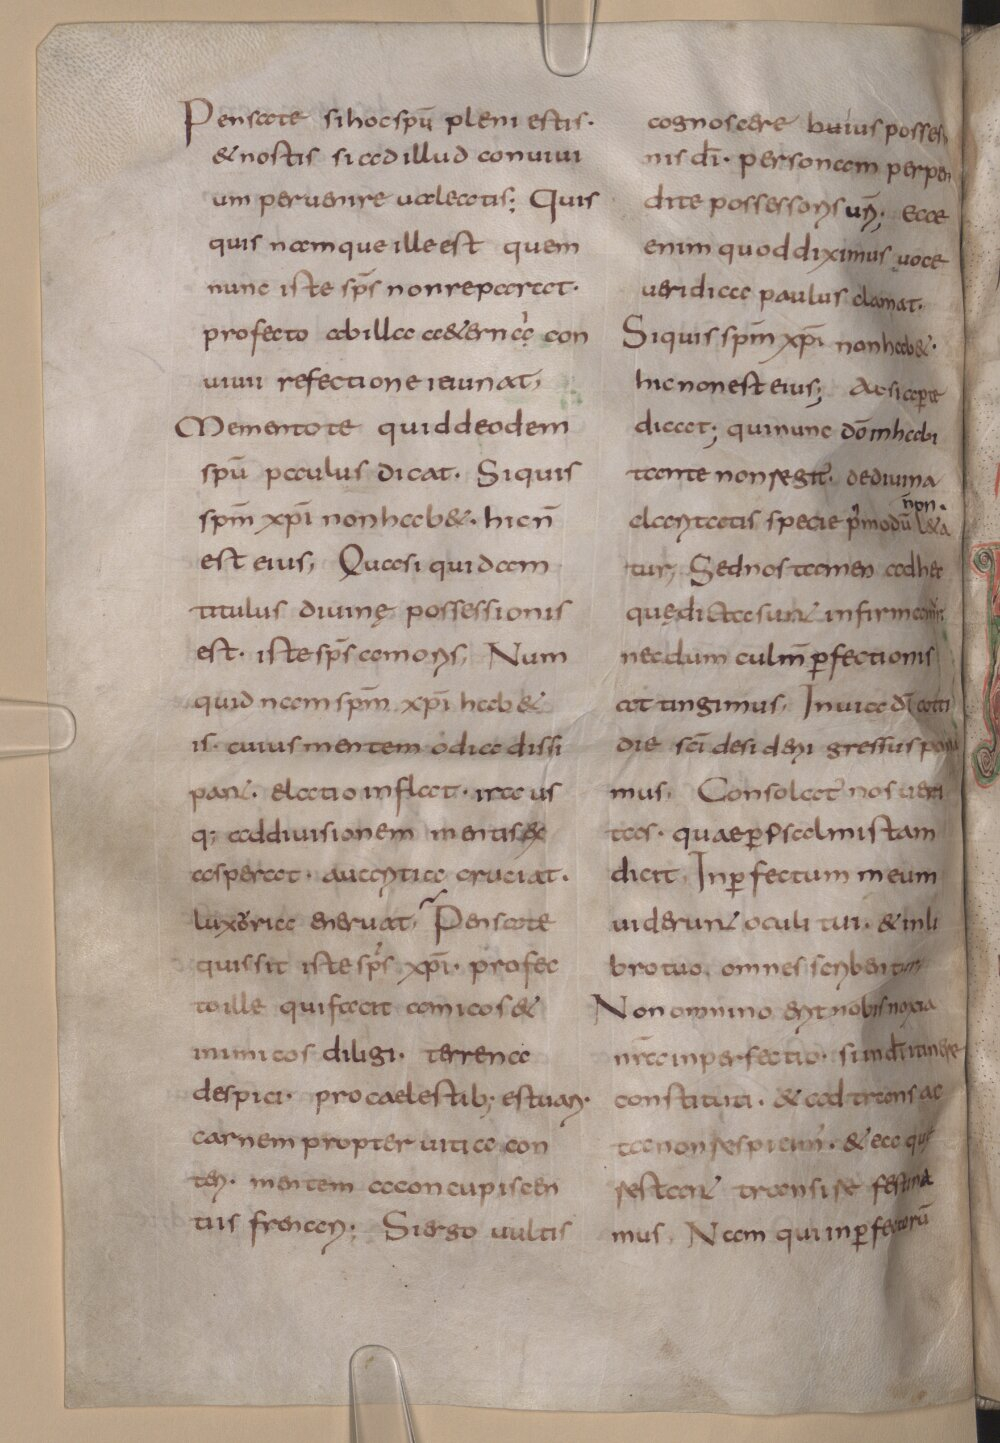 Pensate si hoc spū pleni estis·
& nostis si ad illud conuiui
um peruenire ualeatis; Quis
quis namque ille est quem
nunc iste sp̄s non reparat·
profecto ab illa aeterna con
uiuii refectione ieiunat;
Mementote quid de eodem
spū paulus dicat· Siquis
spm̄ xp̄i non hab&· hic n̄
est eius; Quasi quidam
titulus diuinę possessionis
est· iste sp̄s amoris; Num
quid nam spm̄ xp̄i hab&
is· cuius mentem odia dissi
pant· elatio inflat· ira us
q; ad diuisionem mentis ex
asperat· auaritia cruciat·
luxoria eneruat; Pensate
quis sit iste sp̄s xp̄i· profec
to ille qui facit amicos &
inimicos diligi· terrena
despici· pro caelestib; estuari·
carnem propter uitia con
teri· mentem a concupiscen
tiis frenari; Si ergo uultis
cognoscere huius posses
nis dī· personam perpen
dite possessoris uri; Ecce
enim quod diximus uoce
ueridica paulus clamat·
Siquis spm̄ xp̄i non hab&·
hic non est eius; Ac si aperte
dicat; qui nunc dōm habi
tante non regit̄· de diuina
claritatis specie p̄modū non l&a
tur; Sed nos tamen ad hec
quę dicta sunt infirmamur
necdum culm̄ pfectionis
attingimus; In uia dī cotti
die sc̄i desiderii gressus pona
mus; Consolat̄ nos ueri
tas· quae p psalmistam
dicit; Inpfectum meum
uiderunt oculi tui· & in li
bro tuo omnes scribentur
Non omnino erit nobis noxia
nr̄a inperfectio· si in dī itinere
constituti· & ad transac
ta non respicim̄· & ea que
restant transire festina
mus; Nam qui inpfectorū